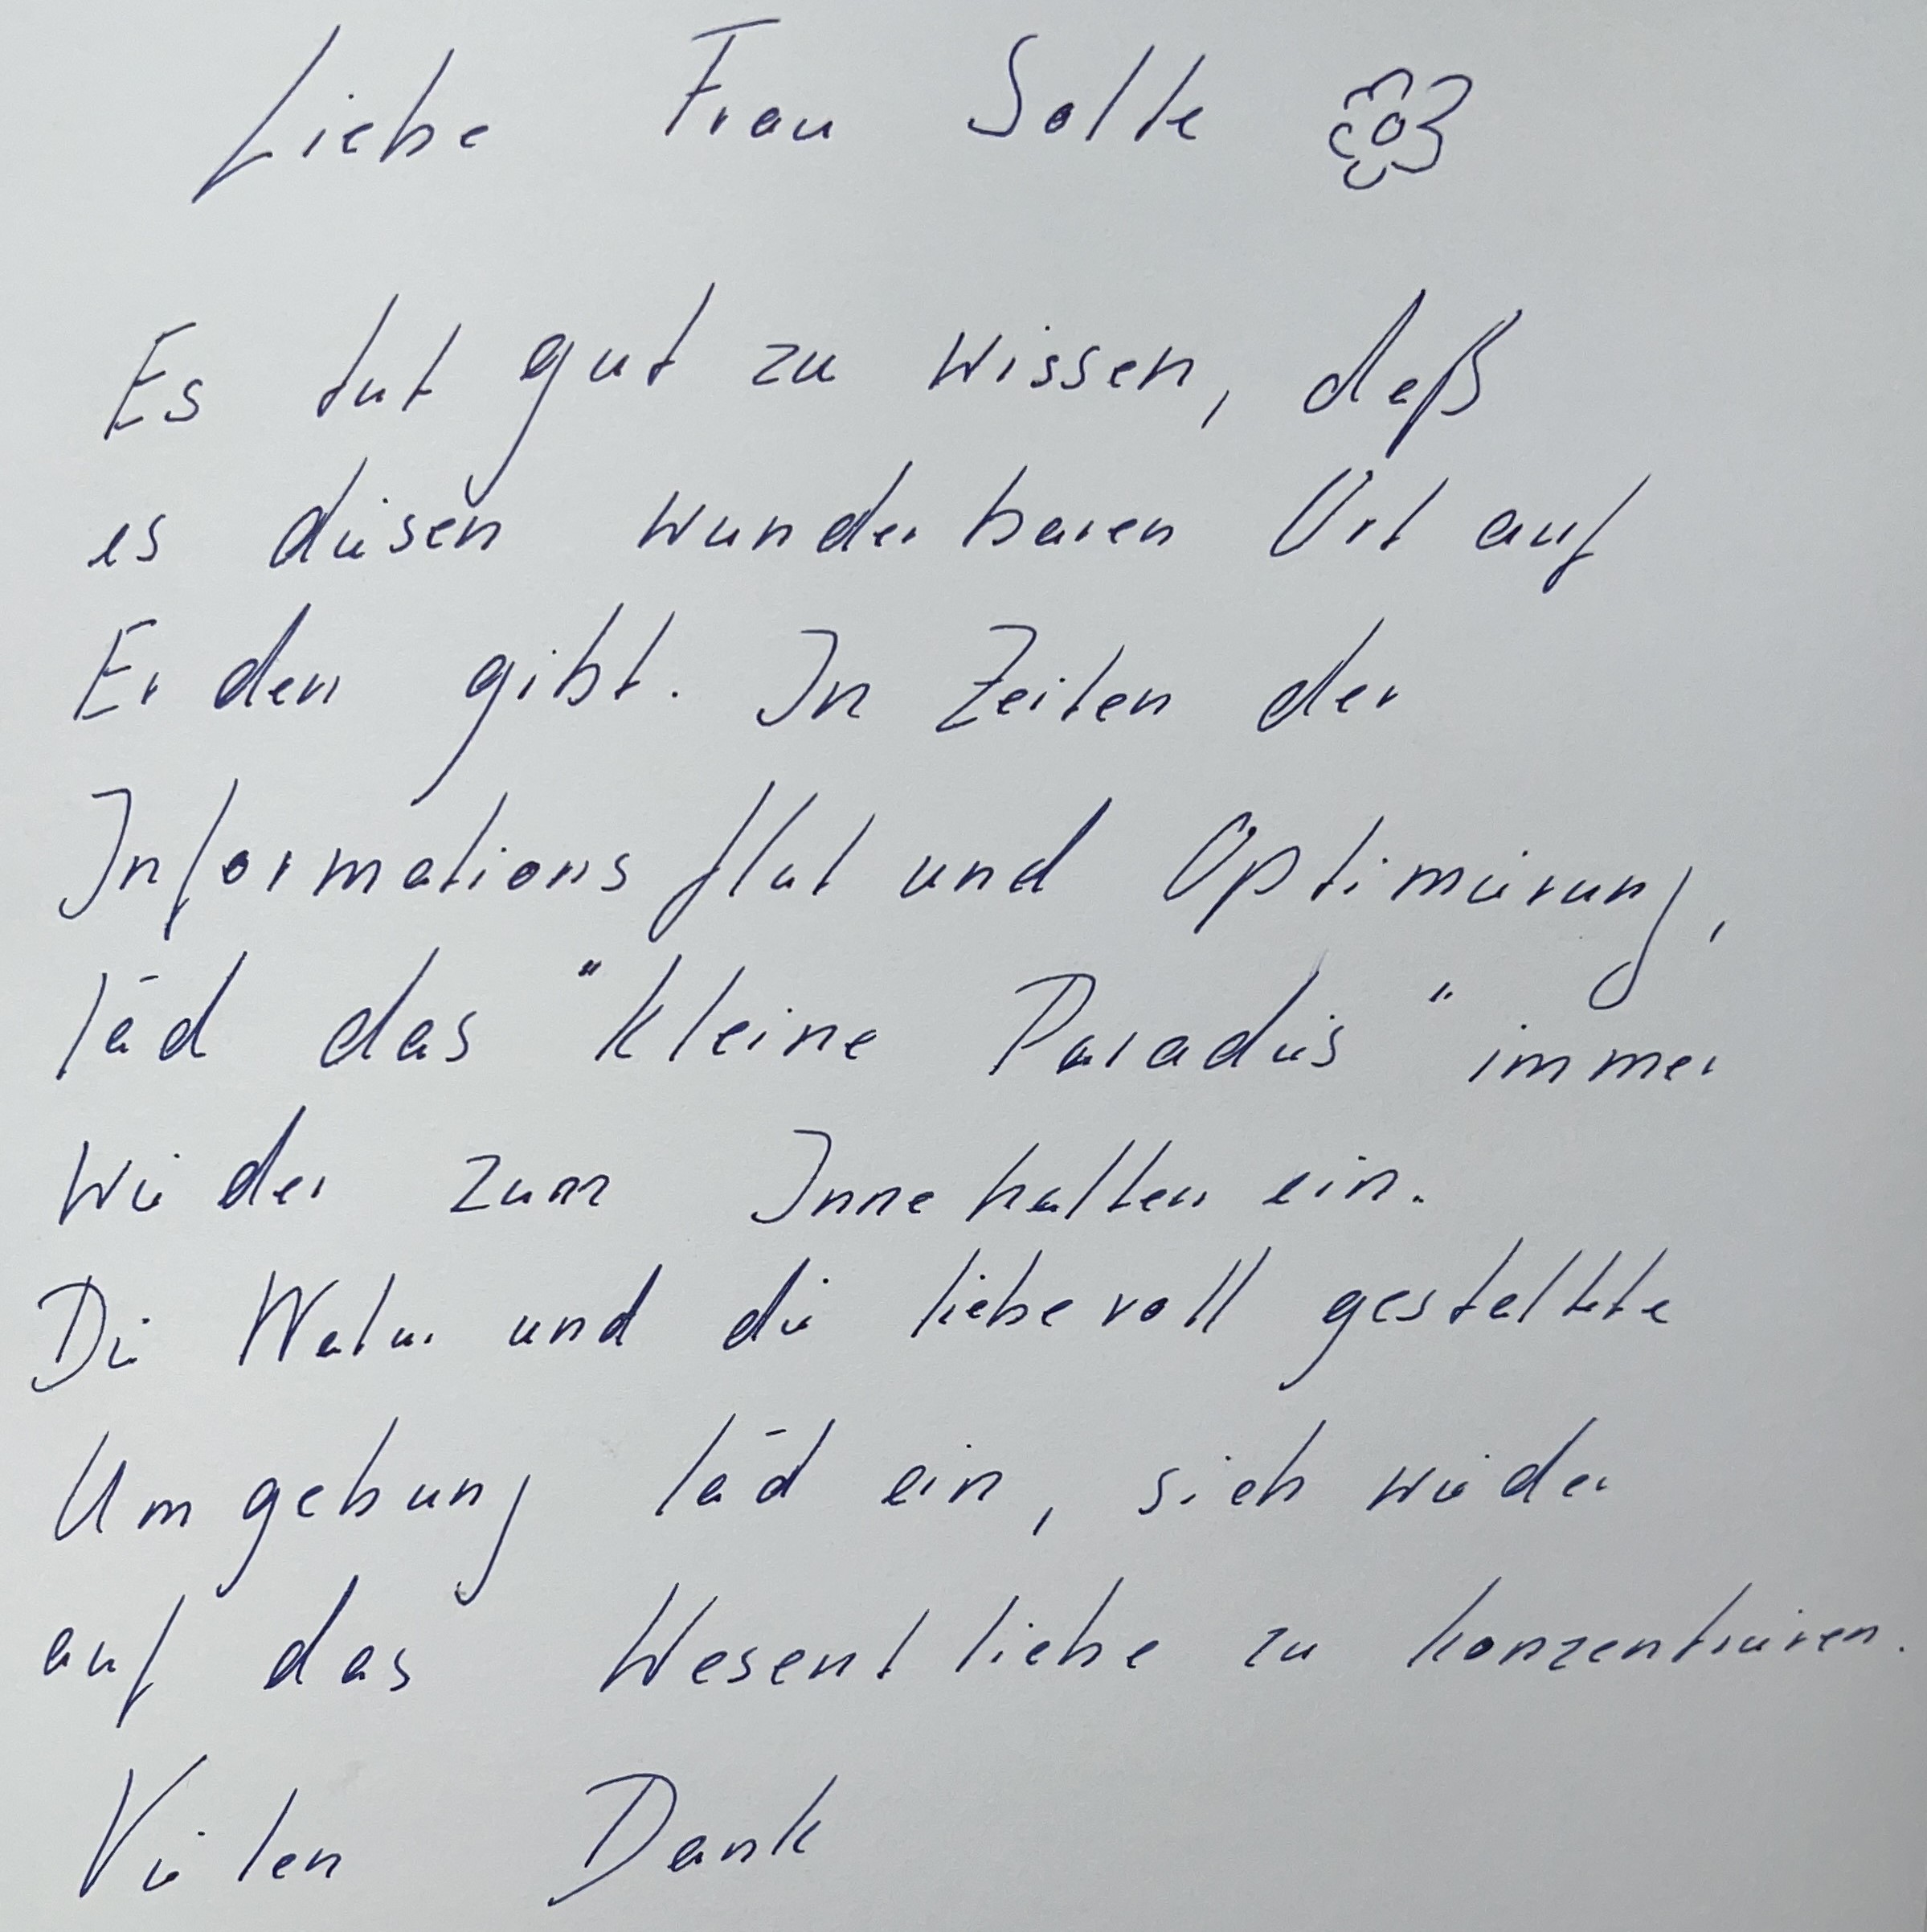 Liebe Frau Solte
Es tut gut zu wissen, daß
es diesen wunderbaren Ort auf
Erden gibt. In Zeiten der
Informationsflut und Optimierung,
läd das "kleine Paradies" immer
wieder zum Innehalten ein.
Die Natur und die liebevoll gestaltete
Umgebung läd ein, sich wieder
auf das Wesentliche zu konzentrieren.
Vielen Dank